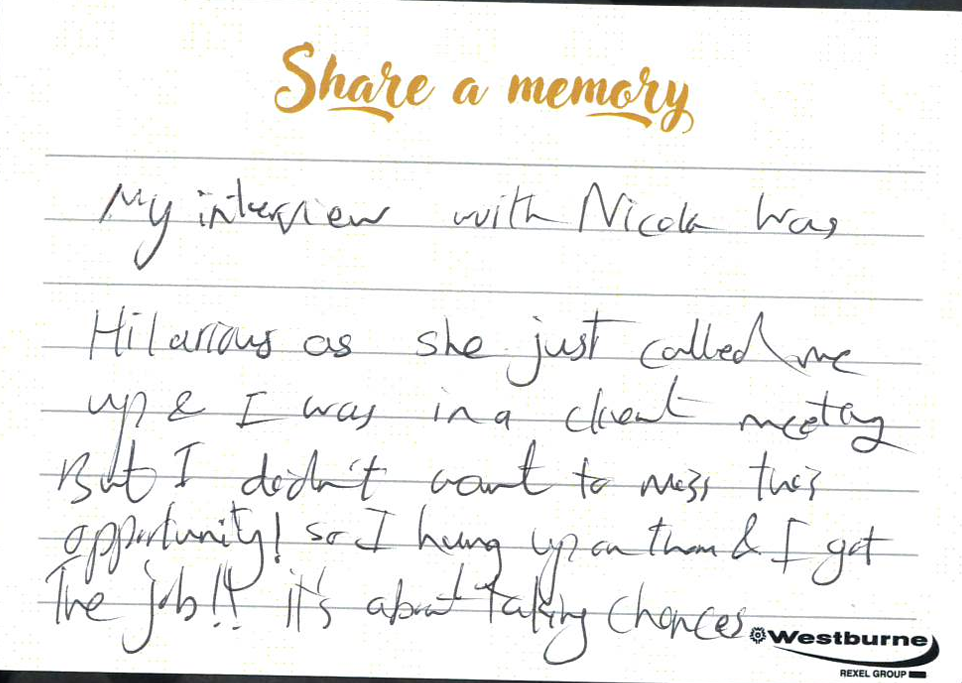 Share a memory
My interview with Nicola was
Hilarious as she just called me
up & I was in a client meeting
But I didn't want to miss this
opportunity! so I hung up on them & I got
The job!! it's about taking chances
Westburne
REXEL GROUP